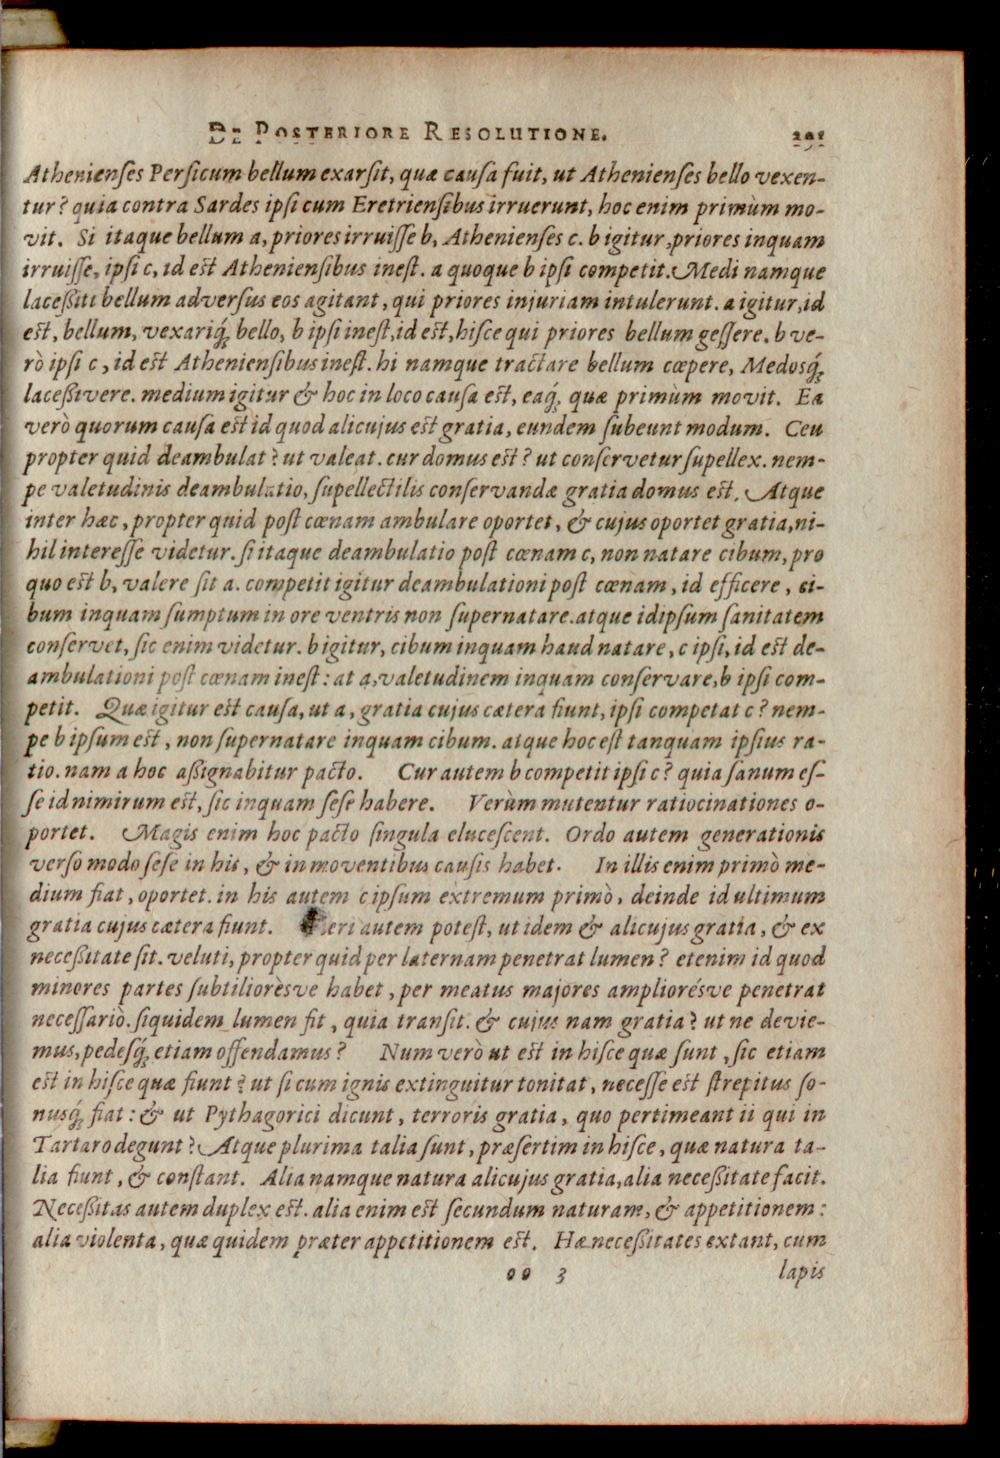 DE POSTERIORE RESOLUTIONE.
Athenienses Persicum bellum exarsit, quæ causa fuit, ut Athenienses bello vexen-
tur? quia contra Sardes ipsi cum Eretriensibus irruerunt, hoc enim primùm mo-
vit. Si itaque bellum a, priores irruisse b, Athenienses c. b igitur, priores inquam
irruisse, ipsi c, id est Atheniensibus inest. a quoque b ipsi competit. Medi namque
lacessiti bellum adversus eos agitant, qui priores injuriam intulerunt. a igitur, id
est, bellum, vexariq́; bello, b ipsi inest, id est, hisce qui priores bellum gessere. b ve-
rò ipsi c, id est Atheniensibus inest. hi namque tractare bellum cœpere, Medosq́;
lacessivere. medium igitur & hoc in loco causa est, eaq́; quæ primùm movit. Ea
verò quorum causa est id quod alicujus est gratia, eundem subeunt modum. Ceu
propter quid deambulat? ut valeat. cur domus est? ut conservetur supellex. nem-
pe valetudinis deambulatio, supellectilis conservandæ gratia domus est. Atque
inter hæc, propter quid post cœnam ambulare oportet, & cujus oportet gratia, ni-
hil interesse videtur. si itaque deambulatio post cœnam c, non natare cibum, pro
quo est b, valere sit a. competit igitur deambulationi post cœnam, id efficere, ci-
bum inquam sumptum in ore ventris non supernatare. atque idipsum sanitatem
conservet, sic enim videtur. b igitur, cibum inquam haud natare, c ipsi, id est de-
ambulationi post cœnam inest: at a, valetudinem inquam conservare, b ipsi com-
petit. Quæ igitur est causa, ut a, gratia cujus cætera fiunt, ipsi competat c? nem-
pe b ipsum est, non supernatare inquam cibum. atque hoc est tanquam ipsius ra-
tio. nam a hoc assignabitur pacto. Cur autem b competit ipsi c? quia sanum es-
se id nimirum est, sic inquam sese habere. Verùm mutentur ratiocinationes o-
portet. Magis enim hoc pacto singula elucescent. Ordo autem generationis
verso modo sese in his, & in moventibus causis habet. In illis enim primò me-
dium fiat, oportet. in his autem c ipsum extremum primò, deinde id ultimum
gratia cujus cætera fiunt. Fieri autem potest, ut idem & alicujus gratia, & ex
necessitate sit. veluti, propter quid per laternam penetrat lumen? etenim id quod
minores partes subtilioresve habet, per meatus majores amplioresve penetrat
necessariò. siquidem lumen fit, quia transit. & cujus nam gratia? ut ne devie-
mus, pedesq́; etiam offendamus? Num verò ut est in hisce quæ sunt, sic etiam
est in hisce quæ fiunt? ut si cum ignis extinguitur tonitat, necesse est strepitus so-
nusq́; fiat: & ut Pythagorici dicunt, terroris gratia, quo pertimeant ii qui in
Tartaro degunt? Atque plurima talia sunt, præsertim in hisce, quæ natura ta-
lia fiunt, & constant. Alia namque natura alicujus gratia, alia necessitate facit.
Necessitas autem duplex est. alia enim est secundum naturam, & appetitionem:
alia violenta, quæ quidem præter appetitionem est. Hæ necessitates extant, cum
oo 3 lapis